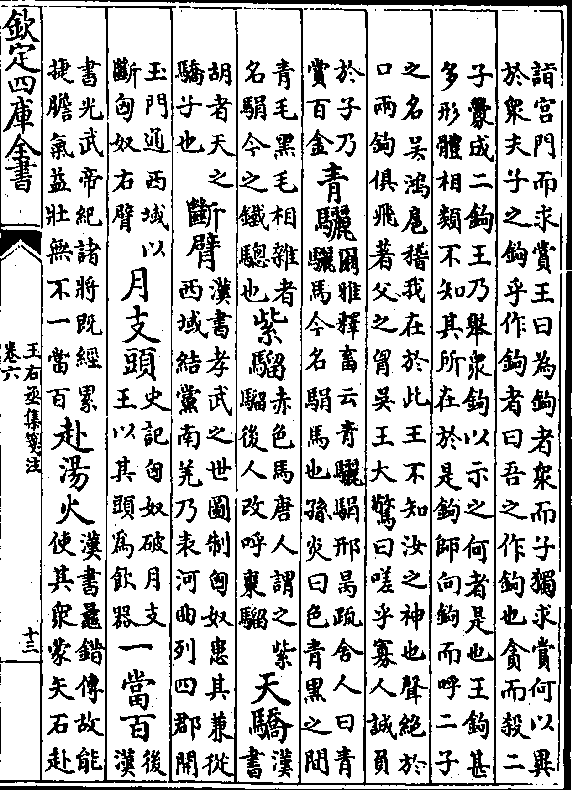 詣宮門而求賞王曰為鉤者衆而子獨求賞何以異
於衆夫子之鉤乎作鉤者曰吾之作鉤也貪而殺二
子釁成二鉤王乃舉衆鉤以示之何者是也王鉤甚
多形體相類不知其所在於是鉤師向鉤而呼二子
之名吳鴻扈稽我在於此王不知汝之神也聲絕於
口兩鉤俱飛著父之胷吳王大驚曰嗟乎寡人誠負
於子乃
賞百金
青驪
爾雅釋畜云青驪駽邢昺疏舍人曰青
驪馬今名駽馬也孫炎曰色青黑之間
青毛黑毛相雜者
名駽今之鐵驄也
紫騮
赤色馬唐人謂之紫
騮後人改呼棗騮
天驕
漢
書
胡者天之
驕子也
斷臂
漢書孝武之世圖制匈奴患其兼從
西域結黨南羌乃表河曲列四郡開
玉門通西域以
斷匈奴右臂
月支頭
史記匈奴破月支
王以其頭爲飲器
一當百
後
漢
書光武帝紀諸將既經累
捷膽氣益壯無不一當百
赴湯火
漢書鼂錯傳故能
使其衆蒙矢石赴
欽定四庫全書
王右丞集箋注
卷六
十三